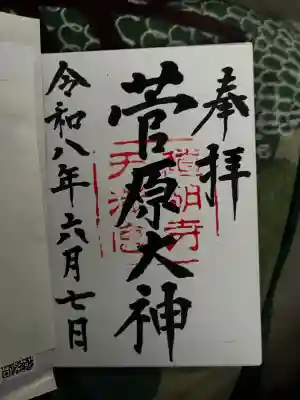 奉拝
菅原大神
道明寺
天満宮
令和八年六月七日